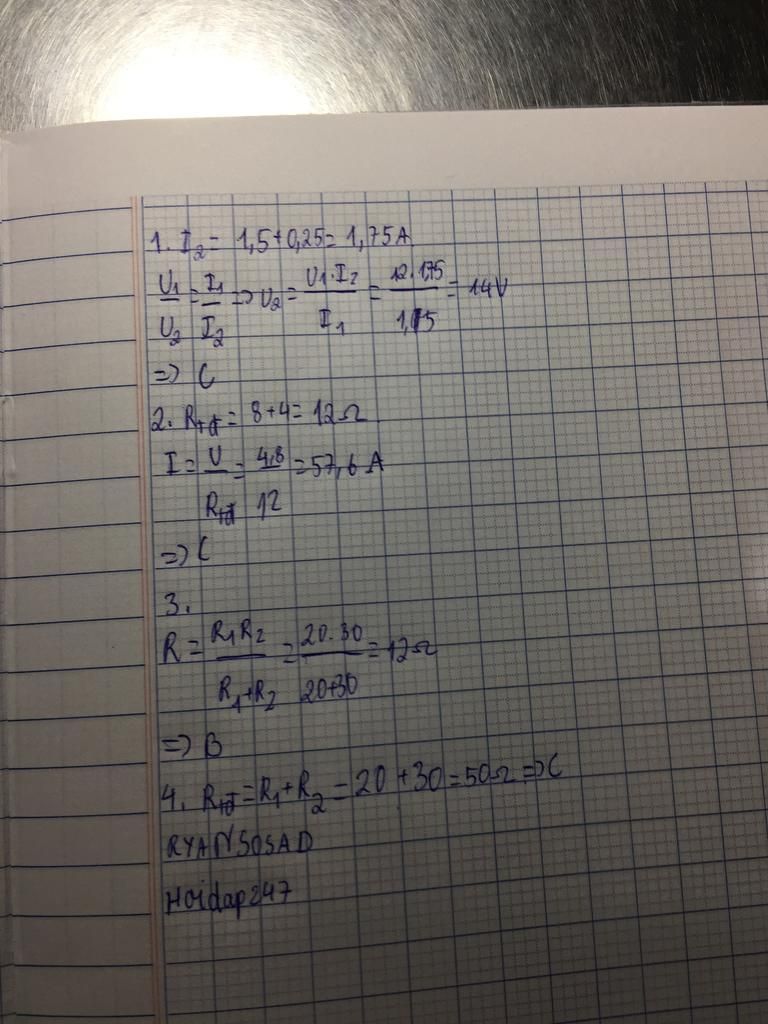 1. I₂ = 1,5+0,25= 1,75A
U₁/U₂ = I₁/I₂ => U₂ = U₁.I₂/I₁ = 12.1,75/1,5 = 14V
=> C
2. Rtđ = 8+4= 12Ω
I = U/Rtđ = 4,8/12 = 57,6 A
=> C
3.
R = R₁R₂/R₁+R₂ = 20.30/20+30 = 12Ω
=> B
4. Rtđ = R₁+R₂ = 20 +30 = 50Ω => C
RYANSOSAD
Hoidap247